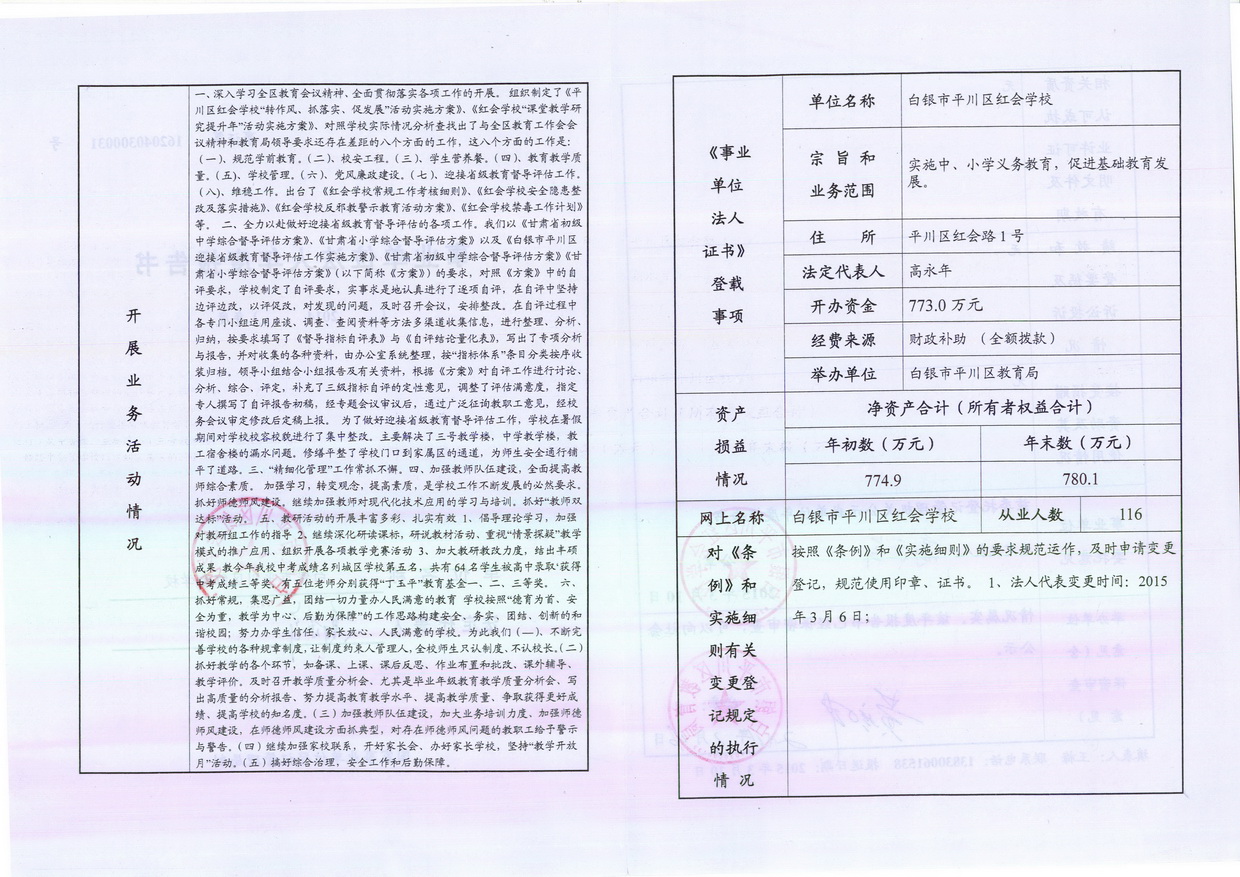 开展业务活动情况
一、深入学习全区教育会议精神、全面贯彻落实各项工作的开展。 组织制定了《平
川区红会学校“转作风、抓落实、促发展”活动实施方案》、《红会学校“课堂教学研
究提升年”活动实施方案》、对照学校实际情况分析查找出了与全区教育工作会会
议精神和教育局领导要求还存在差距的八个方面的工作，这八个方面的工作是：
（一）、规范学前教育。（二）、校安工程。（三）、学生营养餐。（四）、教育教学质
量。（五）、学校管理。（六）、党风廉政建设。（七）、迎接省级教育督导评估工作。
（八）、维稳工作。出台了《红会学校常规工作考核细则》、《红会学校安全隐患整
改及落实措施》、《红会学校反邪教警示教育活动方案》、《红会学校禁毒工作计划》
等。 二、全力以赴做好迎接省级教育督导评估的各项工作。我们以《甘肃省初级
中学综合督导评估方案》、《甘肃省小学综合督导评估方案》以及《白银市平川区
迎接省级教育督导评估工作实施方案》、《甘肃省初级中学综合督导评估方案》《甘
肃省小学综合督导评估方案》（以下简称《方案》）的要求，对照《方案》中的自
评要求，学校制定了自评要求，实事求是地认真进行了逐项自评，在自评中坚持
边评边改，以评促改，对发现的问题，及时召开会议，安排整改。在自评过程中
各专门小组运用座谈、调查、查阅资料等方法多渠道收集信息，进行整理、分析、
归纳，按要求填写了《督导指标自评表》与《自评结论量化表》，写出了专项分析
与报告，并对收集的各种资料，由办公室系统整理，按“指标体系”条目分类按序收
装归档。领导小组结合小组报告及有关资料，根据《方案》对自评工作进行讨论、
分析、综合、评定，补充了三级指标自评的定性意见，调整了评估满意度，指定
专人撰写了自评报告初稿，经专题会议审议后，通过广泛征询教职工意见，经校
务会议审定修改后定稿上报。 为了做好迎接省级教育督导评估工作，学校在暑假
期间对学校校容校貌进行了集中整改。主要解决了三号教学楼，中学教学楼，教
工宿舍楼的漏水问题，修缮平整了学校门口到家属区的通道，为师生安全通行铺
平了道路。三、“精细化管理”工作常抓不懈。四、加强教师队伍建设，全面提高教
师综合素质。 加强学习，转变观念，提高素质，是学校工作不断发展的必然要求。
抓好师德师风建设。继续加强教师对现代化技术应用的学习与培训。抓好“教师双
达标”活动。 五、教研活动的开展丰富多彩、扎实有效 1、倡导理论学习，加强
对教研组工作的指导 2、继续深化研读课标，研说教材活动、重视“情景探疑”教学
模式的推广应用、组织开展各项教学竞赛活动 3、加大教研教改力度，结出丰硕
成果 教今年我校中考成绩名列城区学校第五名，共有 64 名学生被高中录取‘获得
中考成绩三等奖。有五位老师分别获得“丁玉平”教育基金一、二、三等奖。 六、
抓好常规，集思广益，团结一切力量办人民满意的教育 学校按照“德育为首、安
全为重，教学为中心、后勤为保障”的工作思路构建安全、务实、团结、创新的和
谐校园；努力办学生信任、家长放心、人民满意的学校。为此我们（一）、不断完
善学校的各种规章制度，让制度约束人管理人，全校师生只认制度、不认校长。（二）
抓好教学的各个环节，如备课、上课、课后反思、作业布置和批改、课外辅导、
教学评价。及时召开教学质量分析会、尤其是毕业年级教育教学质量分析会、写
出高质量的分析报告、努力提高教育教学水平、提高教学质量、争取获得更好成
绩、提高学校的知名度。（三）加强教师队伍建设，加大业务培训力度、加强师德
师风建设，在师德师风建设方面抓典型，对存在师德师风问题的教职工给予警示
与警告。（四）继续加强家校联系，开好家长会、办好家长学校，坚持“教学开放
月”活动。（五）搞好综合治理，安全工作和后勤保障。
《事业
单位
法人
证书》
登载
事项
单位名称 白银市平川区红会学校
宗 旨 和
业务范围
实施中、小学义务教育，促进基础教育发
展。
住 所 平川区红会路 1 号
法定代表人 高永年
开办资金 773.0 万元
经费来源 财政补助 （全额拨款）
举办单位 白银市平川区教育局
资产
损益
情况
净资产合计（所有者权益合计）
年初数（万元） 年末数（万元）
774.9 780.1
网上名称 白银市平川区红会学校 从业人数 116
对《条
例》和
实施细
则有关
变更登
记规定
的执行
情 况
按照《条例》和《实施细则》的要求规范运作，及时申请变更
登记，规范使用印章、证书。 1、法人代表变更时间：2015
年 3 月 6 日；